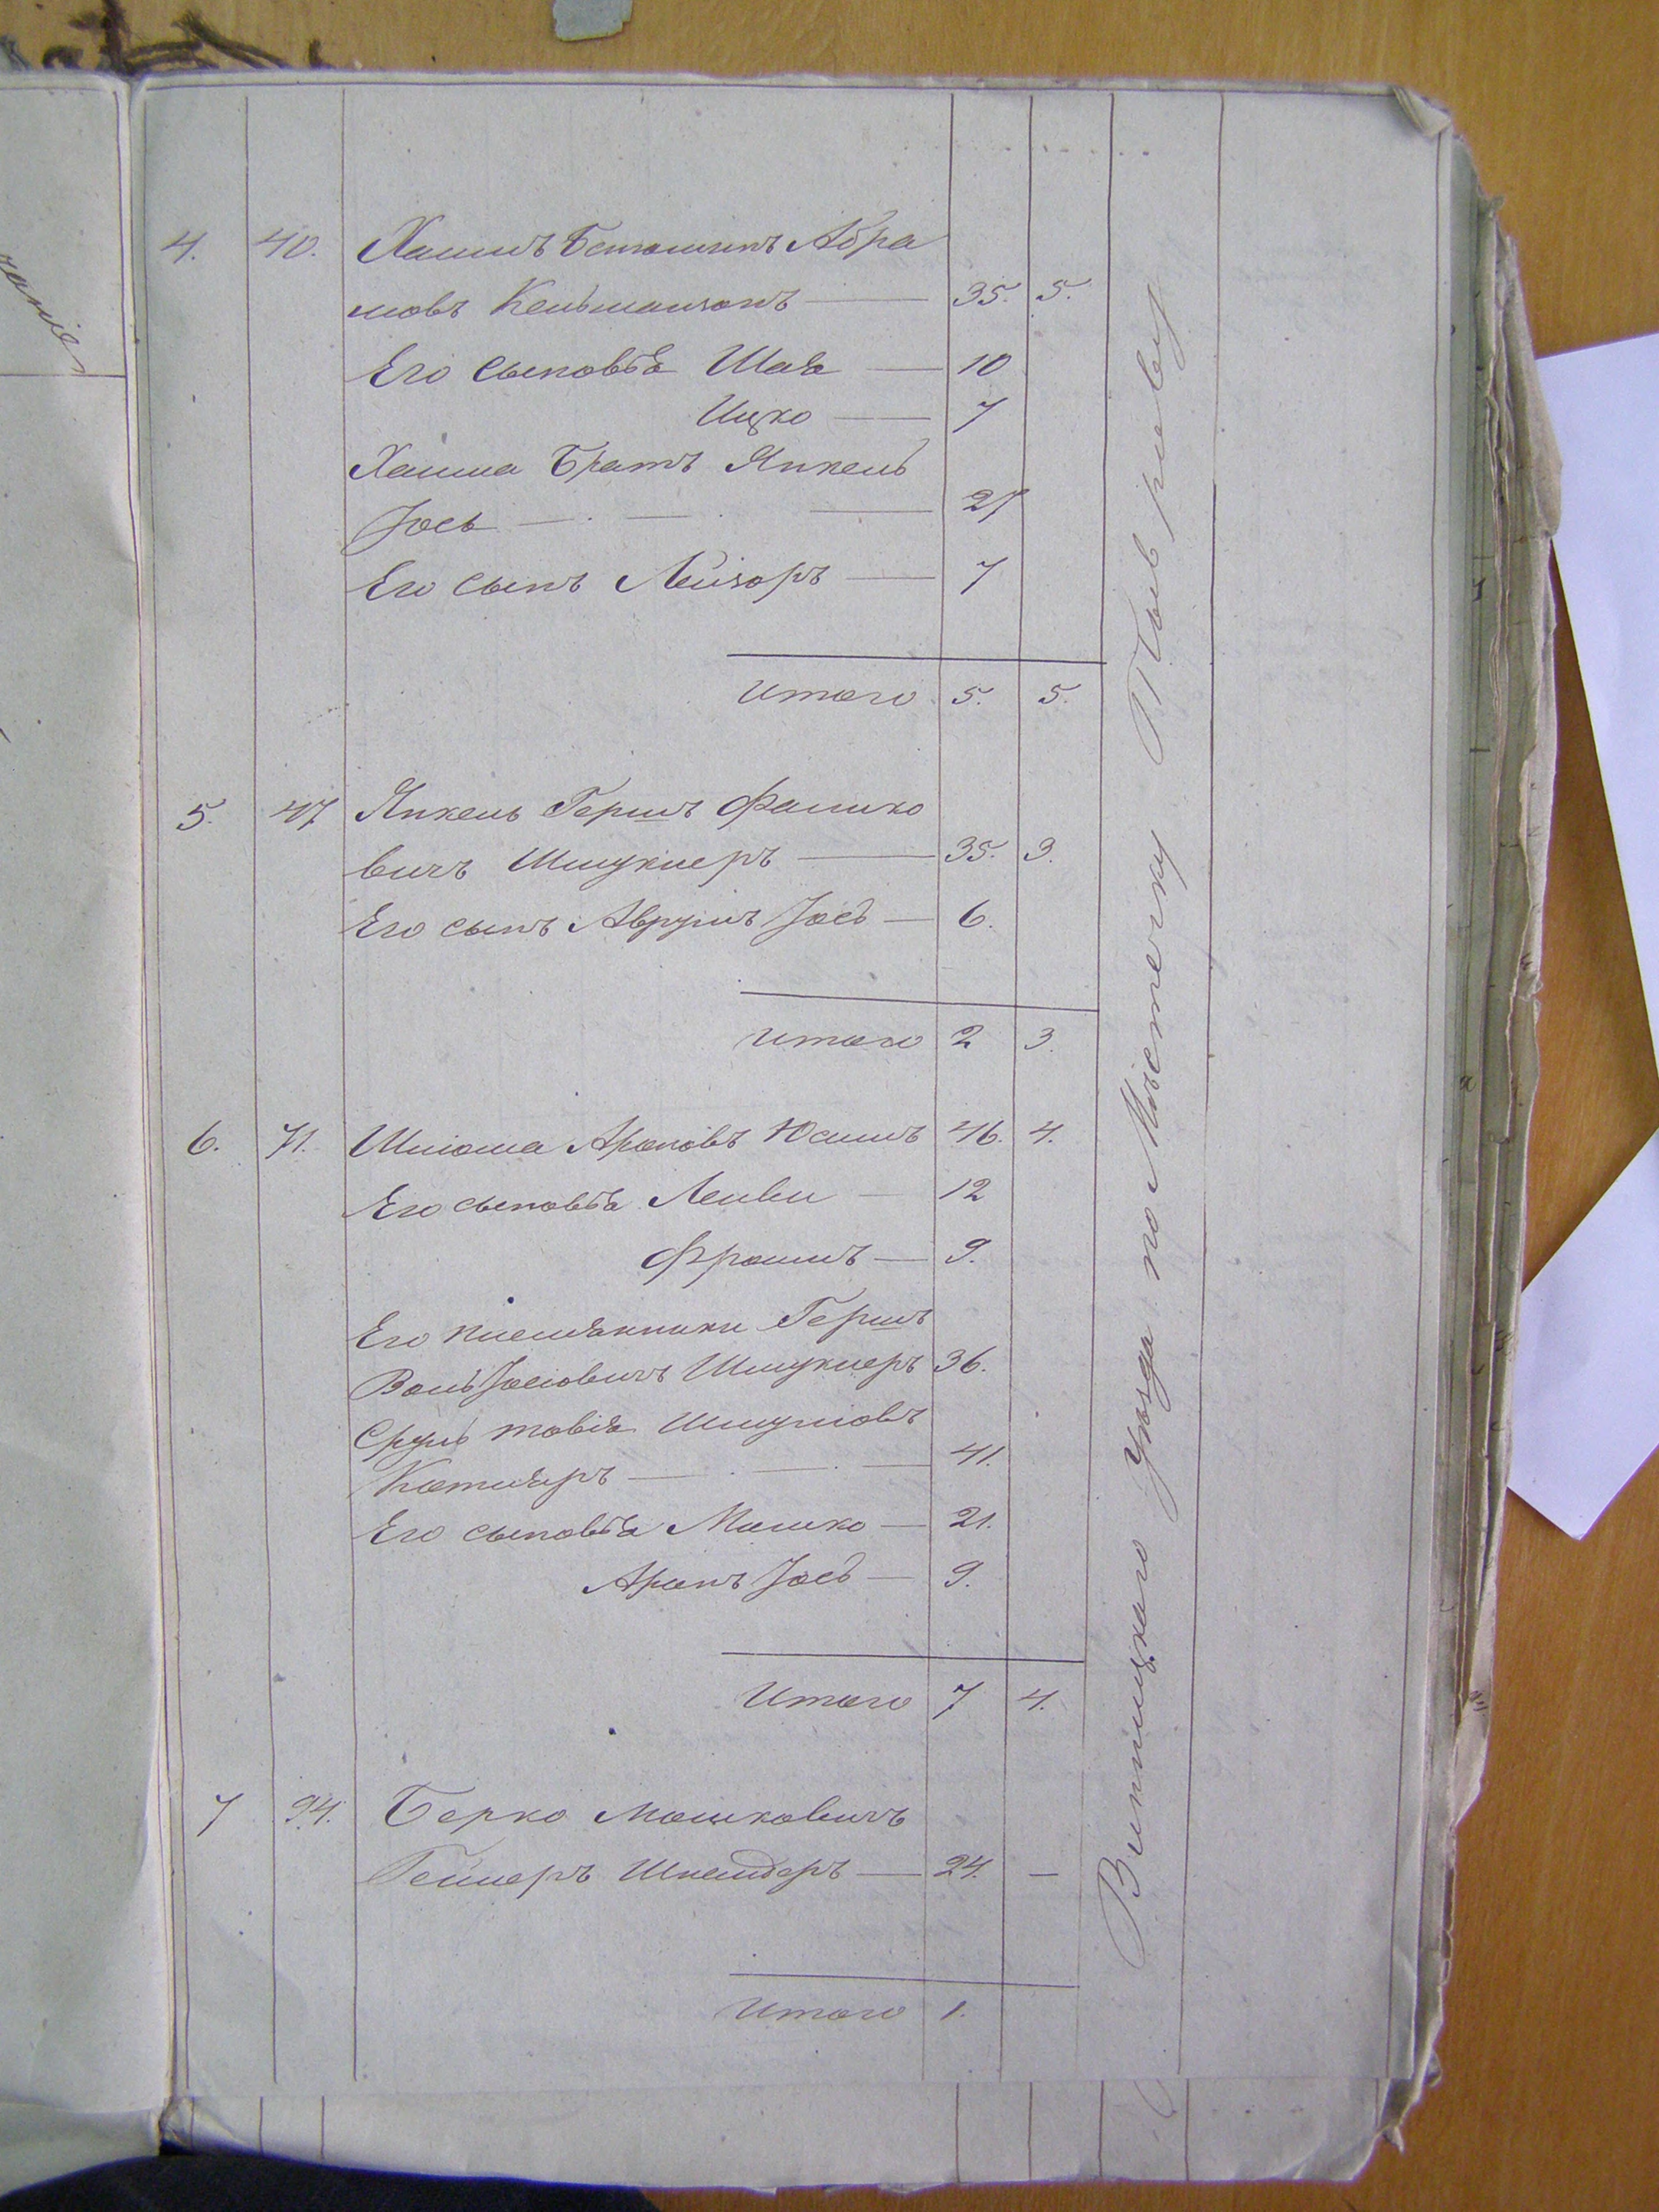 4. 40. Хаимъ Беньоминъ Абра
мовъ Кельманзонъ — 35. 5.
Его сыновья Шая — 10
Ицко — 7
Хаима братъ Янкель
Іось — . — . — 27
Его сынъ Лейзоръ — 7
Итого 5. 5.
5. 47 Янкель Гершъ Фалико
вичъ Шмуклеръ — 35. 3.
Его сынъ Аврумъ Іось — 6.
Итого 2 3.
6. 71. Шлиома Ароновъ 46. 4.
Его сыновья Лейви — 12
Фроимъ — 9.
Его племянники Гершъ
Воль Іосіовичъ Шмуклеръ 36.
Сруль товія Шмулiовъ
Котляръ — . — . — 41.
Его сыновья Мошко — 21.
Аронъ Іось — 9.
Итого 7 4.
7 94. Берко Мошковичъ
Гейлеръ Шнейдеръ — 24. —
Итого 1.
Винницкаго Уѣзда по Мѣстечку Тыврову